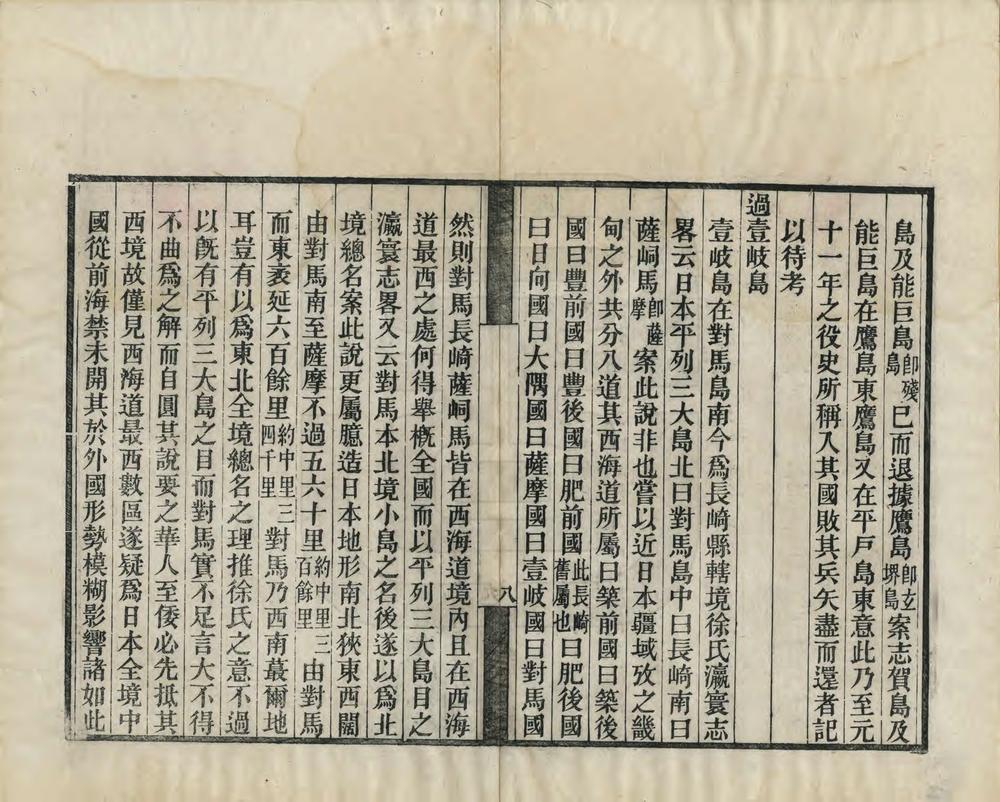 島及能巨島卽殘島已而退據鷹島卽立堺島案志賀島及
能巨島在鷹島東鷹島又在平戶島東意此乃至元
十一年之役史所稱入其國敗其兵矢盡而還者記
以待考
過壹岐島
壹岐島在對馬島南今爲長崎縣轄境徐氏瀛寰志
畧云日本平列三大島北曰對馬島中曰長崎南曰
薩峒馬卽薩摩案此說非也嘗以近日本疆域攷之畿
甸之外共分八道其西海道所屬曰築前國曰築後
國曰豐前國曰豐後國曰肥前國此長崎舊屬也曰肥後國
曰日向國曰大隅國曰薩摩國曰壹岐國曰對馬國
八
然則對馬長崎薩峒馬皆在西海道境內且在西海
道最西之處何得舉概全國而以平列三大島目之
瀛寰志畧又云對馬本北境小島之名後遂以爲北
境總名案此說更屬臆造日本地形南北狹東西闊
由對馬南至薩摩不過五六十里約中里三百餘里由對馬
而東袤延六百餘里約中里三四千里對馬乃西南蕞爾地
耳豈有以爲東北全境總名之理推徐氏之意不過
以旣有平列三大島之目而對馬實不足言大不得
不曲爲之解而自圓其說要之華人至倭必先抵其
西境故僅見西海道最西數區遂疑爲日本全境中
國從前海禁未開其於外國形勢模糊影響諸如此